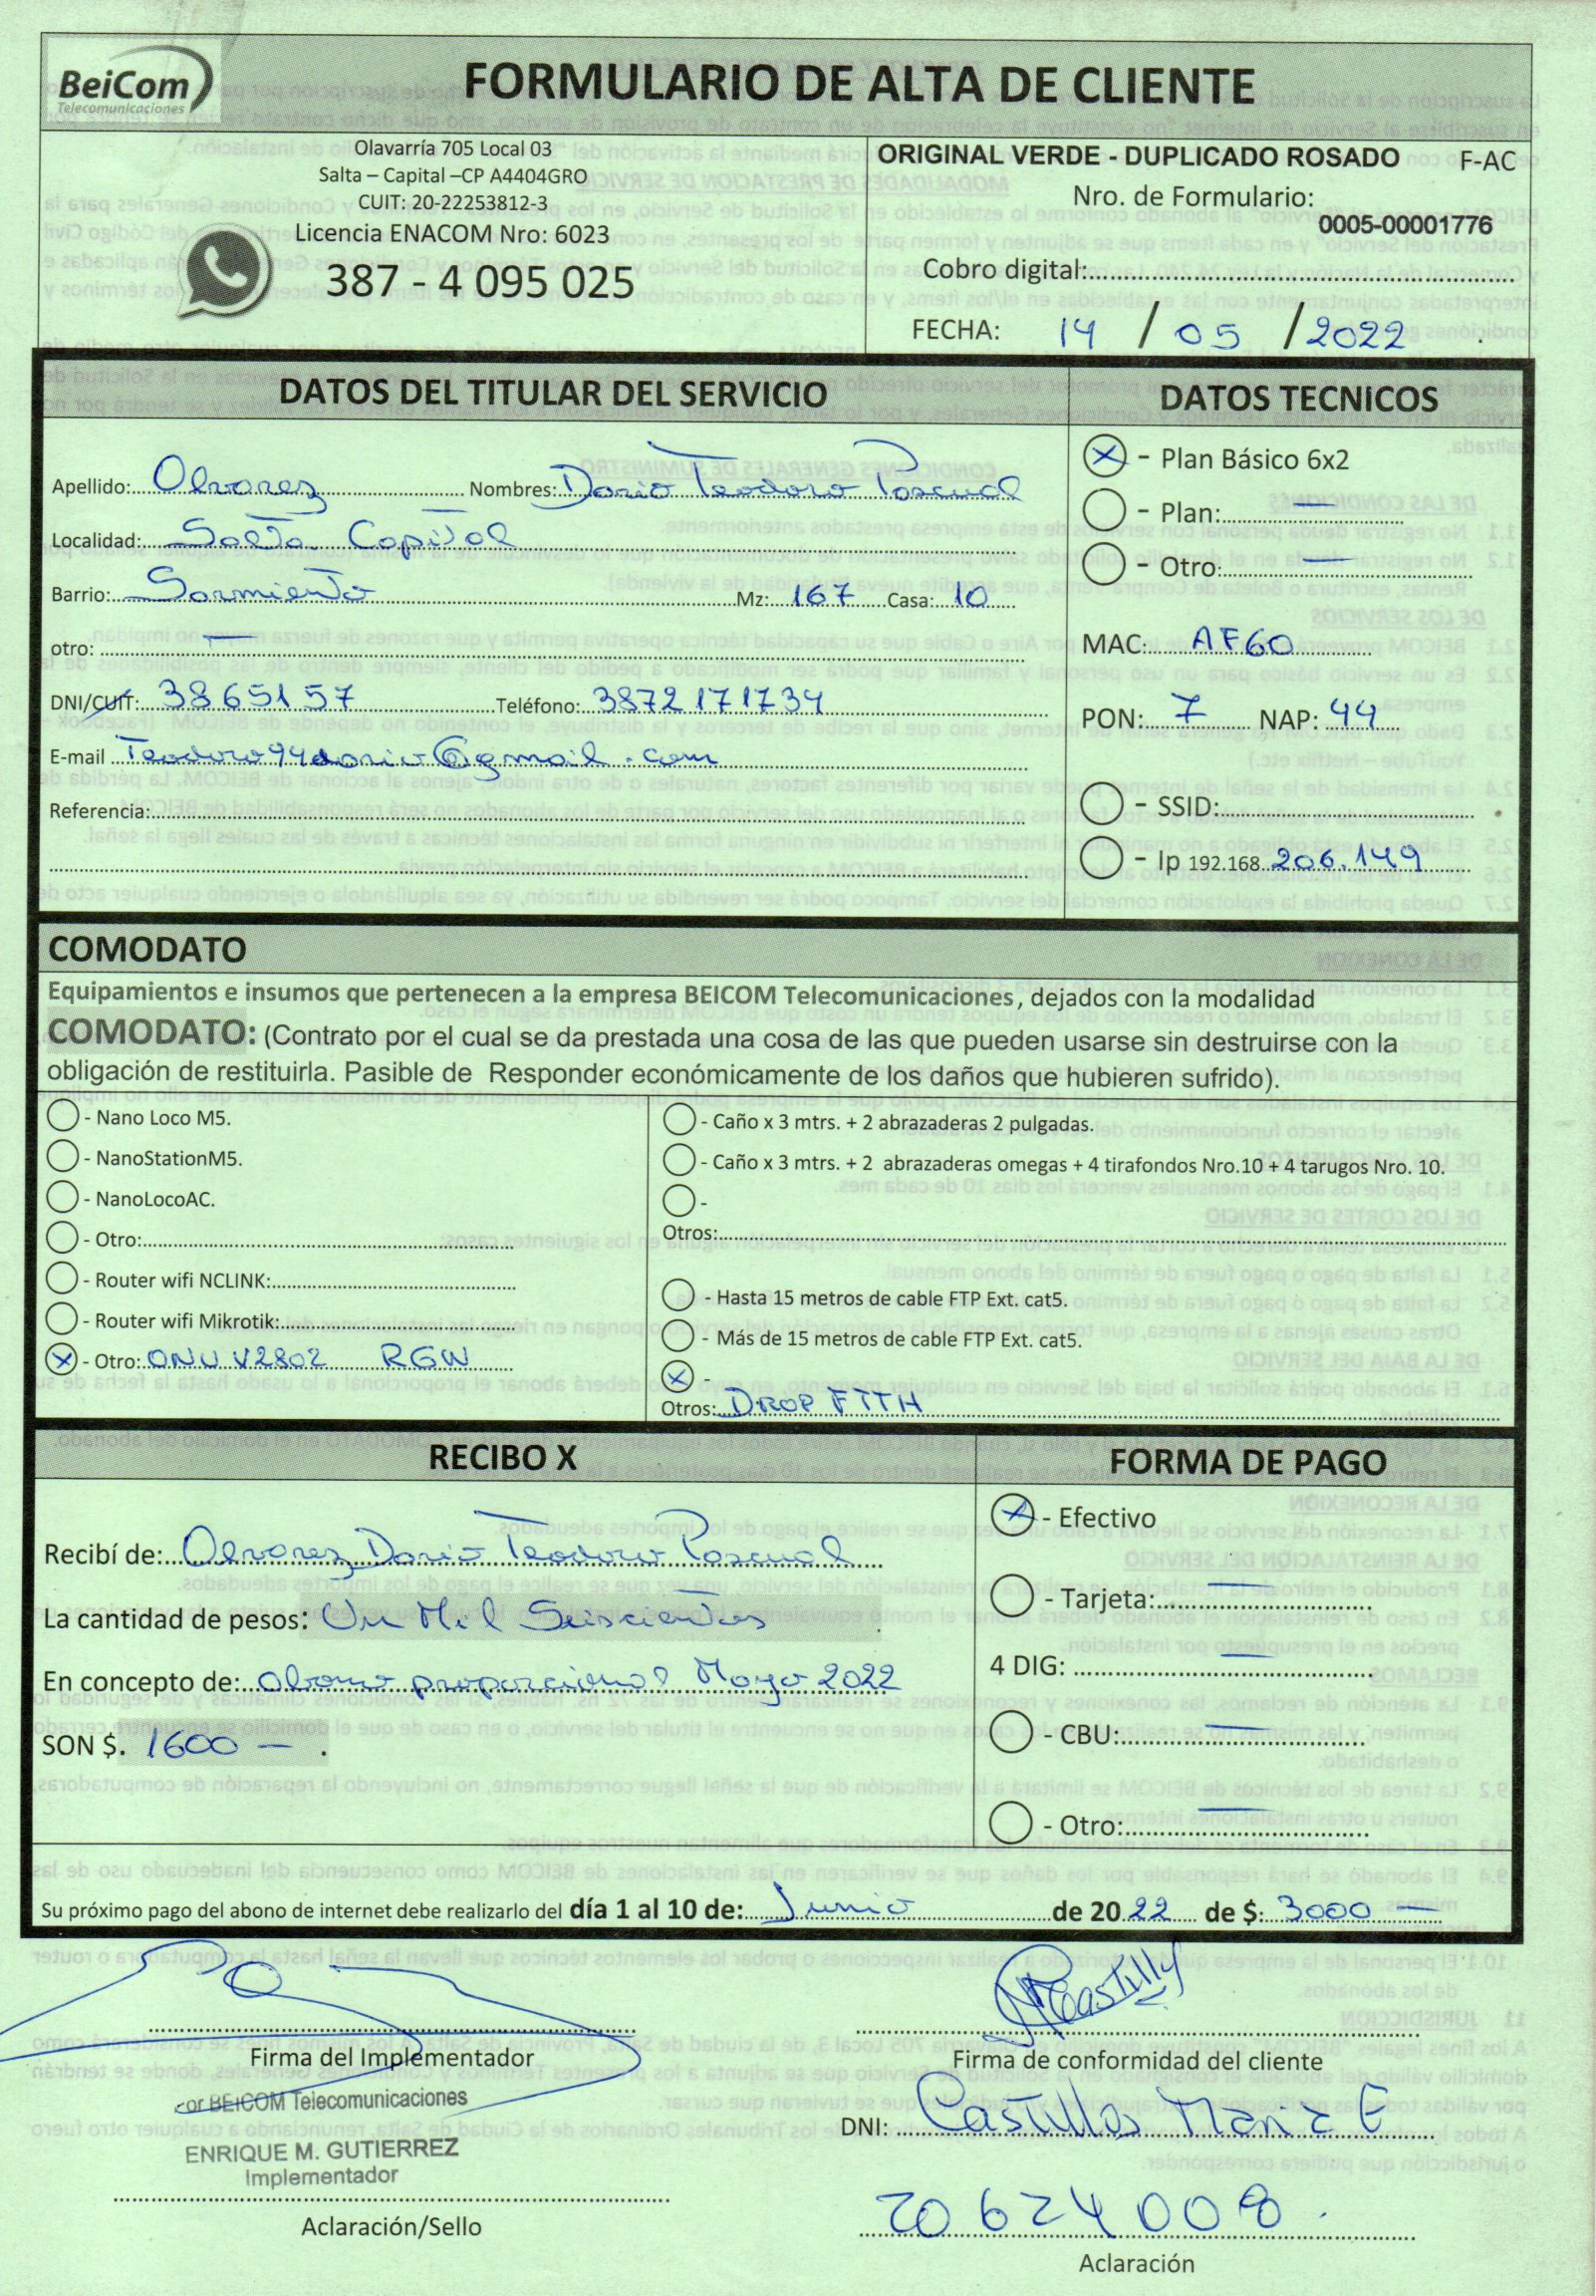 BeiCom
Telecomunicaciones
FORMULARIO DE ALTA DE CLIENTE
Olavarría 705 Local 03
Salta – Capital –CP A4404GRO
CUIT: 20-22253812-3
Licencia ENACOM Nro: 6023
387 - 4 095 025
ORIGINAL VERDE - DUPLICADO ROSADO F-AC
Nro. de Formulario:
0005-00001776
Cobro digital:
FECHA: 14 / 05 / 2022
DATOS DEL TITULAR DEL SERVICIO
Apellido: Alvarez Nombres: Dario Teodoro Pascual
Localidad: Salta Capital
Barrio: Sarmiento Mz: 167 Casa: 10
otro: —
DNI/CUIT: 3865157 Teléfono: 3872171734
E-mail Teodoro94dario@gmail.com
Referencia:
DATOS TECNICOS
- Plan Básico 6x2
- Plan: —
- Otro: —
MAC: AF60
PON: 7 NAP: 44
- SSID:
- Ip 192.168. 206.149
COMODATO
Equipamientos e insumos que pertenecen a la empresa BEICOM Telecomunicaciones, dejados con la modalidad
COMODATO: (Contrato por el cual se da prestada una cosa de las que pueden usarse sin destruirse con la
obligación de restituirla. Pasible de Responder económicamente de los daños que hubieren sufrido).
- Nano Loco M5.
- NanoStationM5.
- NanoLocoAC.
- Otro:
- Router wifi NCLINK:
- Router wifi Mikrotik:
- Otro: ONU V2802 RGW
- Caño x 3 mtrs. + 2 abrazaderas 2 pulgadas.
- Caño x 3 mtrs. + 2 abrazaderas omegas + 4 tirafondos Nro.10 + 4 tarugos Nro. 10.
-
Otros:
- Hasta 15 metros de cable FTP Ext. cat5.
- Más de 15 metros de cable FTP Ext. cat5.
-
Otros: DROP FTTH
RECIBO X
Recibí de: Alvarez Dario Teodoro Pascual
La cantidad de pesos: Un Mil Seiscientos
En concepto de: abono proporcional Mayo 2022
SON $. 1600 — .
FORMA DE PAGO
- Efectivo
- Tarjeta: —
4 DIG: —
- CBU: —
- Otro: —
Su próximo pago del abono de internet debe realizarlo del día 1 al 10 de: Junio de 20 22 de $: 3000 —
Castillo
Firma del Implementador
Firma de conformidad del cliente
or BEICOM Telecomunicaciones
ENRIQUE M. GUTIERREZ
Implementador
Aclaración/Sello
DNI: Castillo Maria E
20624008.
Aclaración